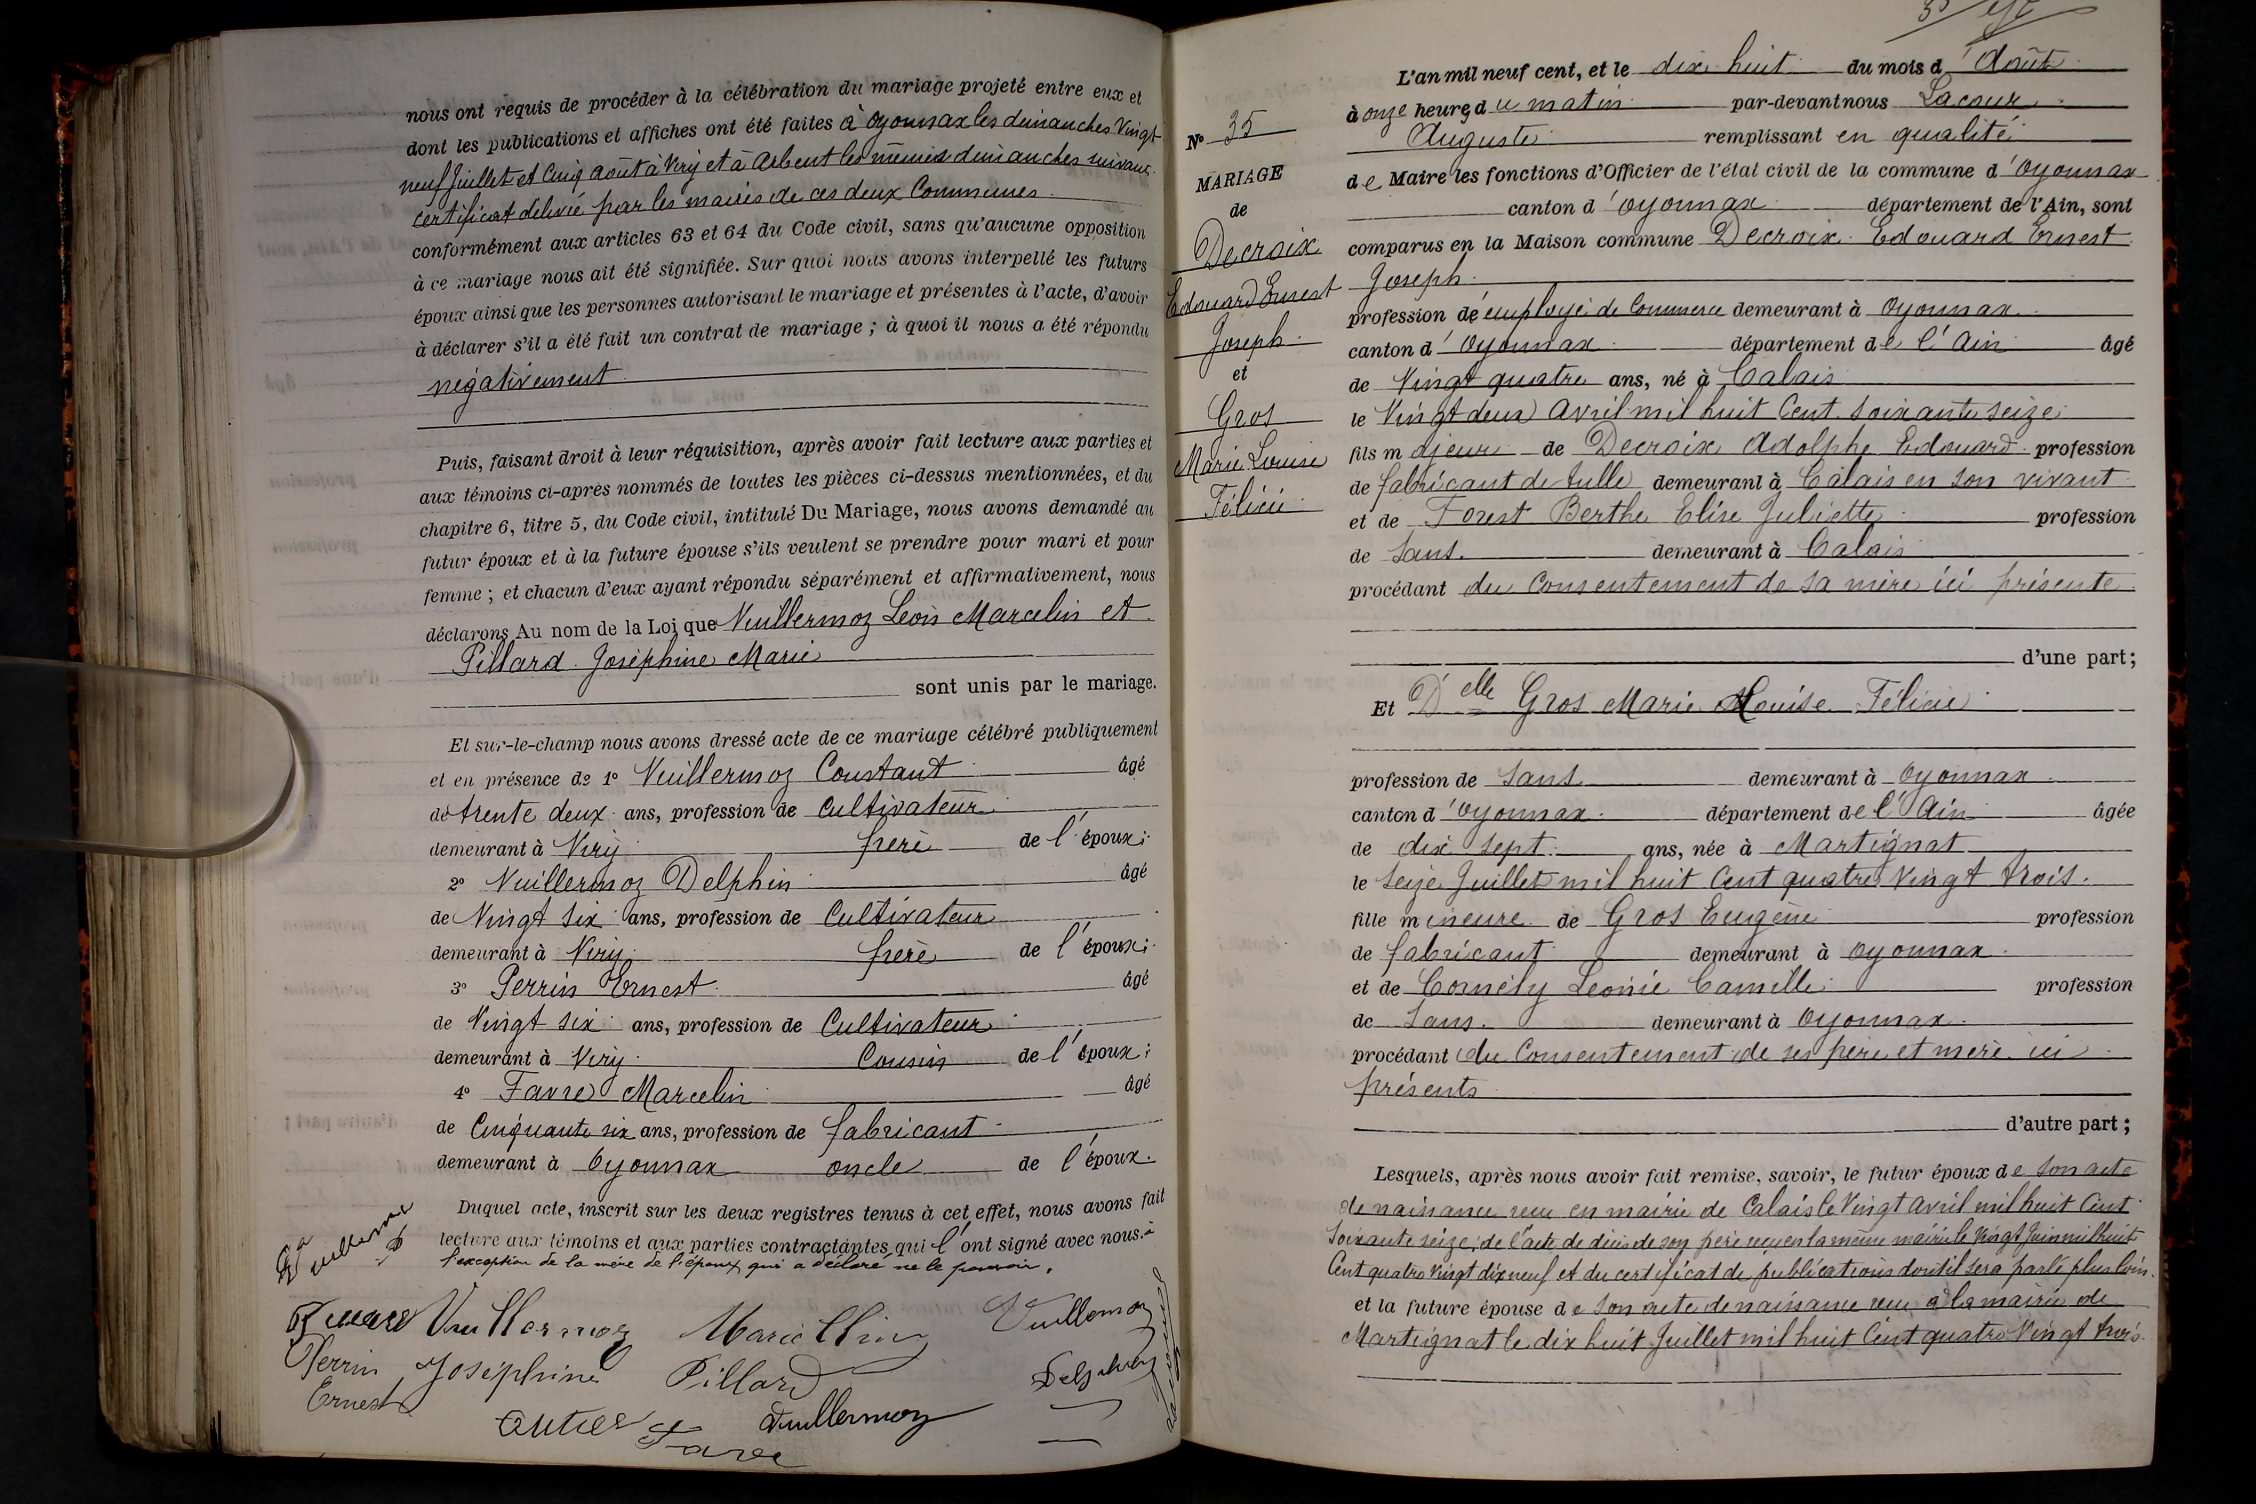 nous ont requis de procéder à la célébration du mariage projeté entre eux et
dont les publications et affiches ont été faites à Oyonnax les dimanches Vingt
neuf Juillet et Cinq août à Viry et à Arbent les mêmes dimanches suivant
certificat délivré par les maires de ces deux Communes.
conformément aux articles 63 et 64 du Code civil, sans qu'aucune opposition
à ce mariage nous ait été signifiée. Sur quoi nous avons interpellé les futurs
époux ainsi que les personnes autorisant le mariage et présentes à l'acte, d'avoir
à déclarer s'il a été fait un contrat de mariage ; à quoi il nous a été répondu
négativement
Puis, faisant droit à leur réquisition, après avoir fait lecture aux parties et
aux témoins ci-après nommés de toutes les pièces ci-dessus mentionnées, et du
chapitre 6, titre 5, du Code civil, intitulé Du Mariage, nous avons demandé au
futur époux et à la future épouse s'ils veulent se prendre pour mari et pour
femme ; et chacun d'eux ayant répondu séparément et affirmativement, nous
déclarons Au nom de la Loi que Vuillermoz Léon Marcelin et
Pillard Joséphine Marie
sont unis par le mariage.
Et sur-le-champ nous avons dressé acte de ce mariage célébré publiquement
et en présence de 1° Vuillermoz Constant âgé
de trente deux ans, profession de Cultivateur
demeurant à Viry frère de l'époux ;
2° Vuillermoz Delphin âgé
de Vingt six ans, profession de Cultivateur
demeurant à Viry frère de l'époux ;
3° Perrin Ernest âgé
de Vingt six ans, profession de Cultivateur
demeurant à Viry Cousin de l'époux ;
4° Favre Marcelin âgé
de Cinquante six ans, profession de fabricant
demeurant à Oyonnax oncle de l'époux.
Duquel acte, inscrit sur les deux registres tenus à cet effet, nous avons fait
lecture aux témoins et aux parties contractantes qui l'ont signé avec nous à
l'exception de la mère de l'époux qui a déclaré ne le pouvoir.
Vuillermoz Marcellin Vuillermoz
Perrin Joséphine Pillard Delphin
Ernest
Vuillermoz
Favre
N° 35
MARIAGE
de
Decroix
Edouard Ernest
Joseph
et
Gros
Marie Louise
Félicie
L'an mil neuf cent, et le dix huit du mois d'Août
à onze heures du matin par-devant nous Lacour
Auguste remplissant en qualité
de Maire les fonctions d'Officier de l'état civil de la commune d'Oyonnax
canton d'Oyonnax département de l'Ain, sont
comparus en la Maison commune Decroix Edouard Ernest
Joseph
profession de employé de Commerce demeurant à Oyonnax
canton d'Oyonnax département de l'Ain âgé
de Vingt quatre ans, né à Calais
le Vingt deux Avril mil huit Cent Soixante seize
fils majeur de Decroix Adolphe Edouard profession
de fabricant de tulle demeurant à Calais en son vivant
et de Forest Berthe Elise Juliette profession
de Sans. demeurant à Calais
procédant du Consentement de sa mère ici présente
d'une part ;
Et Delle Gros Marie Louise Félicie
profession de Sans demeurant à Oyonnax
canton d'Oyonnax département de l'Ain âgée
de dix sept ans, née à Martignat
le Seize Juillet mil huit Cent quatre Vingt trois.
fille mineure de Gros Eugène profession
de fabricant demeurant à Oyonnax
et de Cornély Léonie Camille profession
de Sans. demeurant à Oyonnax
procédant du Consentement de ses père et mère ici
présents
d'autre part ;
Lesquels, après nous avoir fait remise, savoir, le futur époux de son acte
de naissance reçu en mairie de Calais le Vingt Avril mil huit Cent
Soixante seize ; de l'acte de décès de son père reçu en la même mairie le Vingt Juin mil huit
Cent quatre Vingt dix neuf et du certificat de publications dont il sera parlé plus loin.
et la future épouse de son acte de naissance reçu à la mairie de
Martignat le dix huit Juillet mil huit Cent quatre Vingt trois.